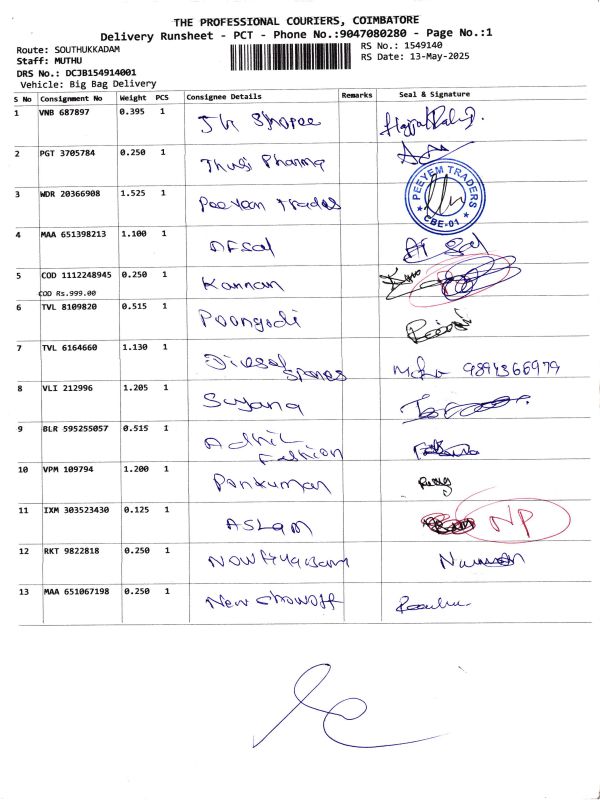 THE PROFESSIONAL COURIERS, COIMBATORE
Delivery Runsheet - PCT - Phone No.:9047080280 - Page No.:1
Route: SOUTHUKKADAM
RS No.: 1549140
Staff: MUTHU
RS Date: 13-May-2025
DRS No.: DCJB154914001
Vehicle: Big Bag Delivery
S No Consignment No Weight PCS Consignee Details Remarks Seal & Signature
1 VNB 687897 0.395 1
2 PGT 3705784 0.250 1 Thusi Pharma
3 WDR 20366908 1.525 1 Peeyem Trades
PEEYEM TRADERS
CBE-01
4 MAA 651398213 1.100 1 Afsal
5 COD 1112248945 0.250 1 Kannan
COD Rs.999.00
6 TVL 8109820 0.515 1 Poongodi
7 TVL 6164660 1.130 1 Diesal
Spares 9894366979
8 VLI 212996 1.205 1 Suyana
9 BLR 595255057 0.515 1 Adhil
Fashion
10 VPM 109794 1.200 1 Pankumar
11 IXM 303523430 0.125 1 ASLAM NP
12 RKT 9822818 0.250 1
13 MAA 651067198 0.250 1 New